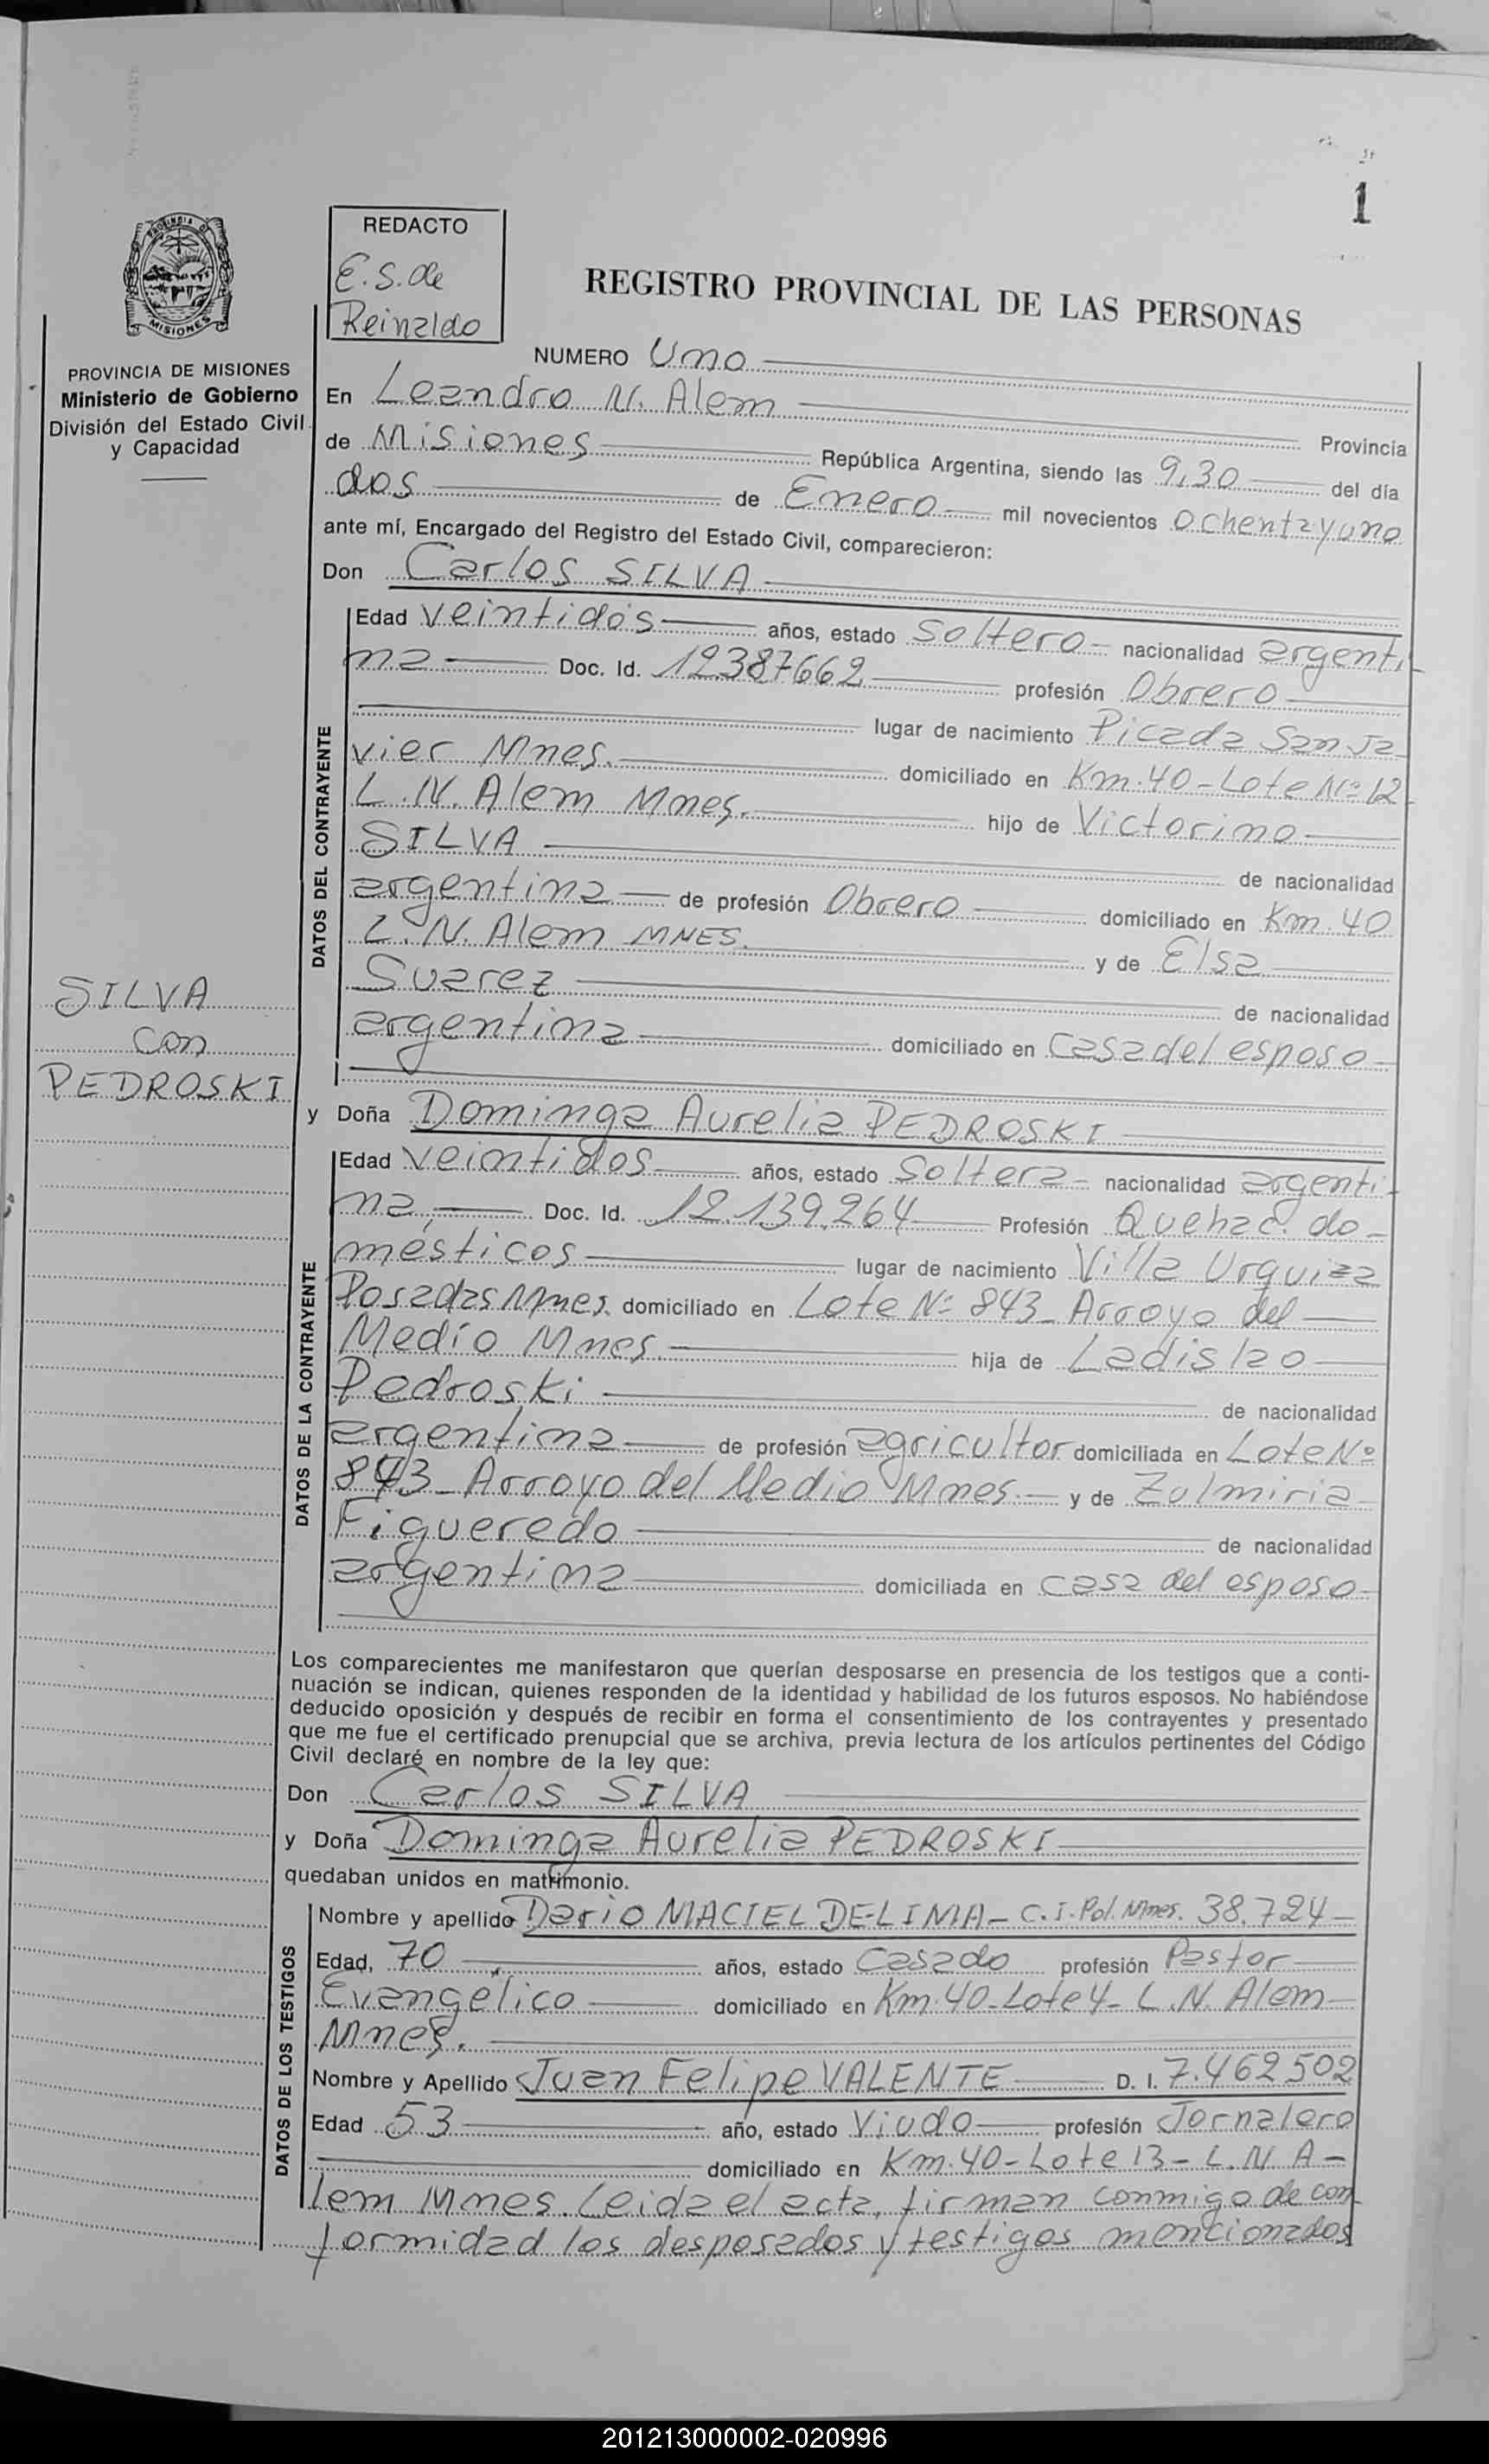 1
REDACTO
E.S. de
Reinaldo
REGISTRO PROVINCIAL DE LAS PERSONAS
PROVINCIA DE MISIONES
Ministerio de Gobierno
División del Estado Civil
y Capacidad
NUMERO Uno
En Leandro N. Alem
Provincia
de Misiones República Argentina, siendo las 9,30 del día
dos de Enero mil novecientos Ochentayuno
ante mí, Encargado del Registro del Estado Civil, comparecieron:
Don Carlos SILVA
DATOS DEL CONTRAYENTE
Edad veintidós años, estado Soltero- nacionalidad argenti-
na Doc. Id. 12.387662 profesión Obrero
lugar de nacimiento Picada San Ja
vier Mnes. domiciliado en Km.40-Lote Nº12-
L.N. Alem Mnes. hijo de Victorino
SILVA de nacionalidad
argentina de profesión Obrero domiciliado en Km. 40
L.N. Alem MNES. y de Elsa
Suarez de nacionalidad
argentina domiciliado en casa del esposo
SILVA
con
PEDROSKI
y Doña Dominga Aurelia PEDROSKI
DATOS DE LA CONTRAYENTE
Edad veintidos años, estado Soltera- nacionalidad argenti-
na, Doc. Id. 12.139.264 Profesión Quehac. do-
mésticos lugar de nacimiento Villa Urquiza
Posadas Mnes. domiciliado en Lote Nº 843- Arroyo del
Medio Mnes. hija de Ladislao
Pedroski de nacionalidad
argentina de profesión agricultor domiciliada en Lote Nº
843- Arroyo del Medio Mnes.- y de Zulmiria
Figueredo de nacionalidad
argentina domiciliada en casa del esposo
Los comparecientes me manifestaron que querían desposarse en presencia de los testigos que a conti-
nuación se indican, quienes responden de la identidad y habilidad de los futuros esposos. No habiéndose
deducido oposición y después de recibir en forma el consentimiento de los contrayentes y presentado
que me fue el certificado prenupcial que se archiva, previa lectura de los artículos pertinentes del Código
Civil declaré en nombre de la ley que:
Don Carlos SILVA
y Doña Dominga Aurelia PEDROSKI
quedaban unidos en matrimonio.
DATOS DE LOS TESTIGOS
Nombre y apellido Dario MACIEL DE-LIMA- C.I. Pol. Mnes. 38.724
Edad, 70 años, estado Casado profesión Pastor
Evangélico domiciliado en Km.40-Lote 4- L.N. Alem
Mnes.
Nombre y Apellido Juan Felipe VALENTE D. I. 7.462502
Edad 53 año, estado Viudo profesión Jornalero
domiciliado en Km.40-Lote 13- L.N. A-
lem Mnes. Leida el acta, firman conmigo de con
formidad los desposados y testigos mencionados
201213000002-020996